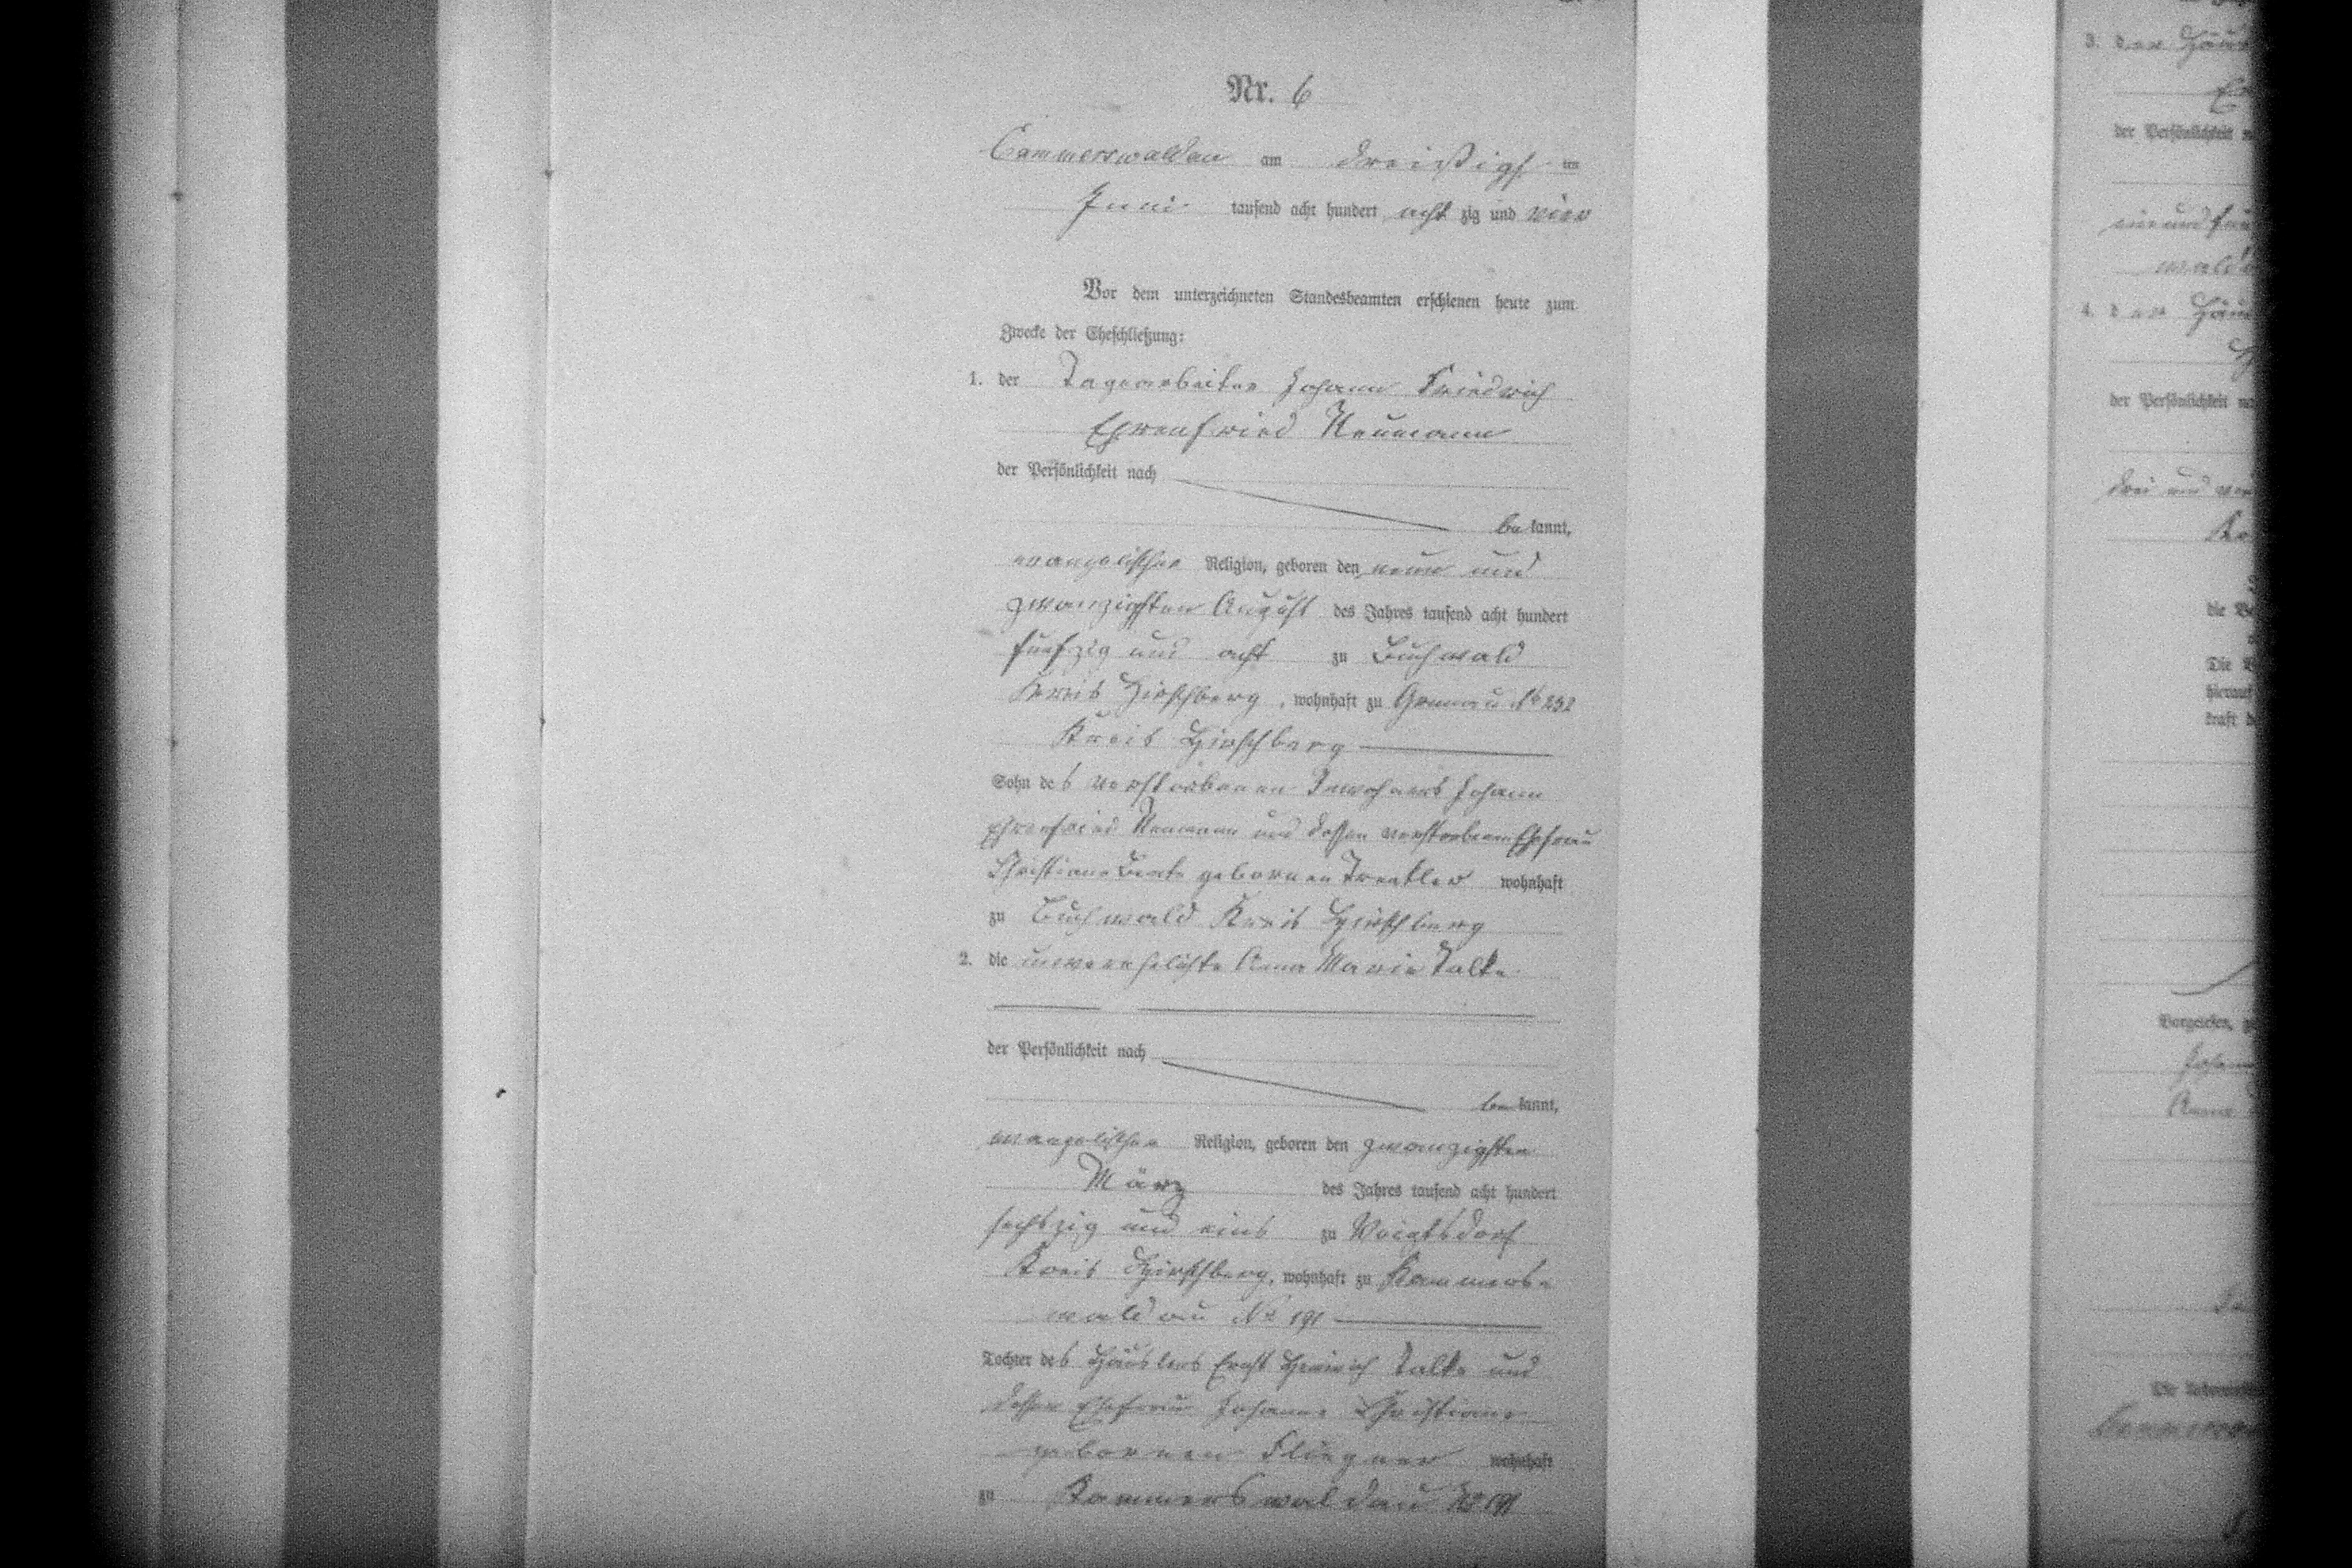 Nr. 6
Cammerswaldau am dreißigsten
Juni tausend acht hundert acht zig und vier
Vor dem unterzeichneten Standesbeamten erschienen heute zum
Zwecke der Eheschließung:
1. der Tagearbeiter Johann Friedrich
Ehrenfried Neumann
der Persönlichkeit nach
be kannt,
evangelischer Religion, geboren den neun und
zwanzigsten August des Jahres tausend acht hundert
fünfzig und acht zu Buchwald
Kreis Hirschberg, wohnhaft zu Grunau No 232
Kreis Hirschberg
Sohn des verstorbenen Inwohners Johann
Ehrenfried Neumann und dessen verstorbenen Ehefrau
Christiane Beate gebornen Treutler wohnhaft
zu Buchwald Kreis Hirschberg
2. die unverehelichte Anna Marie Talke
der Persönlichkeit nach
be kannt,
evangelischer Religion, geboren den zwanzigsten
März des Jahres tausend acht hundert
sechszig und eins zu Voigtsdorf
Kreis Hirschberg, wohnhaft zu Kammers-
waldau No 191
Tochter des Häuslers Ernst Heinrich Talke und
dessen Ehefrau Johanne Christiane
gebornen Fliegner wohnhaft
zu Kammerswaldau No 191
3. der
der Persönlichkeit
4. der
der Persönlichkeit
drei und
die
Die
hierauf
kraft
Vorgelesen,